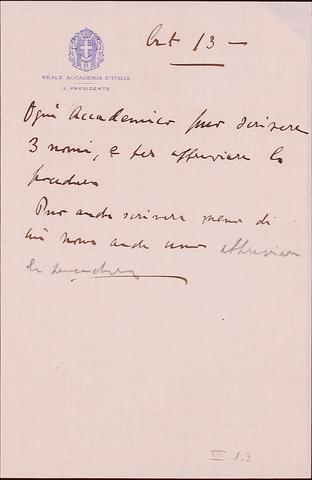 REALE ACCADEMIA D'ITALIA
IL PRESIDENTE
Art 13 —
Ogni Accademico può scrivere
3 nomi, e per abbreviare la
procedura
Può anche scrivere meno di
nomi anche uno abbreviare
la procedura
VII. 1. 3